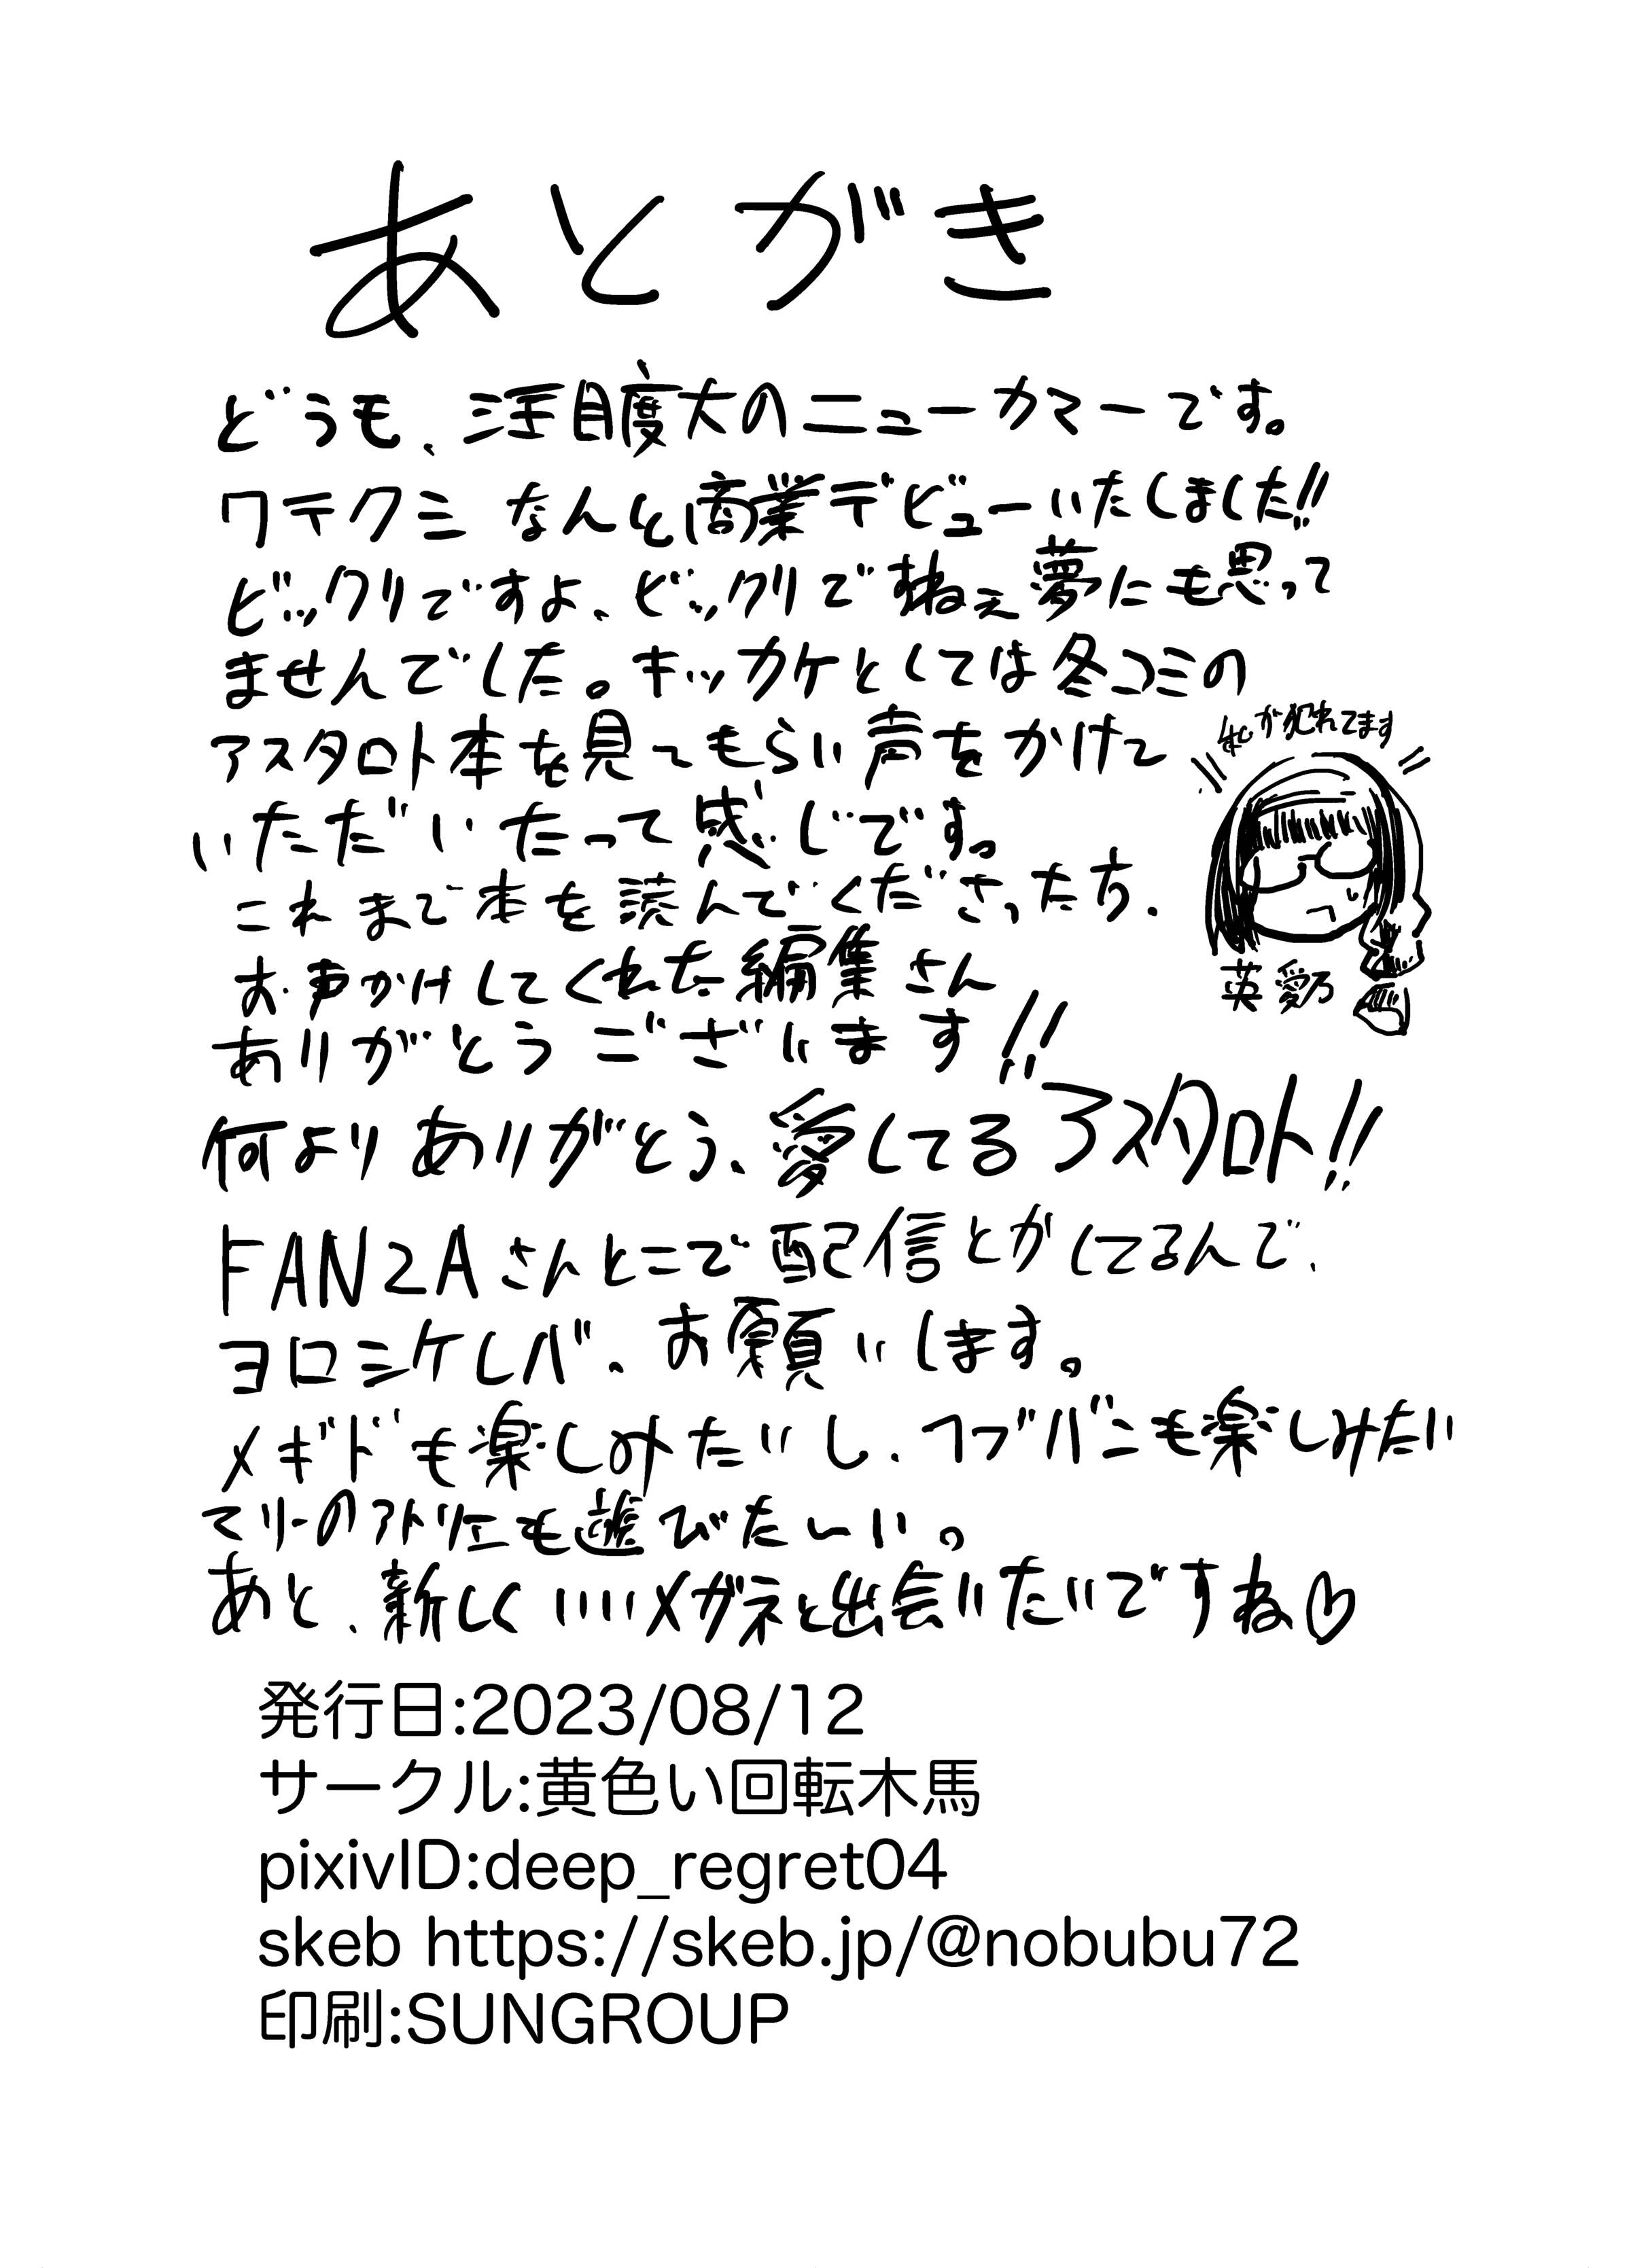 あとがき
どうも、注目度大のニューカマーです。
ワテクシ なんと商業デビューいたしました!!
ビックリですよ、ビックリですねぇ夢にも思って
ませんでした。キッカケとしては冬コミの
アスタロト本を見てもらい声をかけて
いただいたって感じです。
これまで本を読んでくださった方、
お声かけしてくれた編集さん
ありがとうございます!!
私が犯れてます
英 愛乃
何よりありがとう、愛してるアスタロト!!
FANZAさんとこで配信とかしてるんで、
ヨロシケレバ、お願いします。
メギドも楽しみたいし、ヘブバンも楽しみたい
マリーのアトリエも遊びたーい。
あと、新しくいいメガネと出会いたいですね♡
発行日:2023/08/12
サークル:黄色い回転木馬
pixivID:deep_regret04
skeb https://skeb.jp/@nobubu72
印刷:SUNGROUP